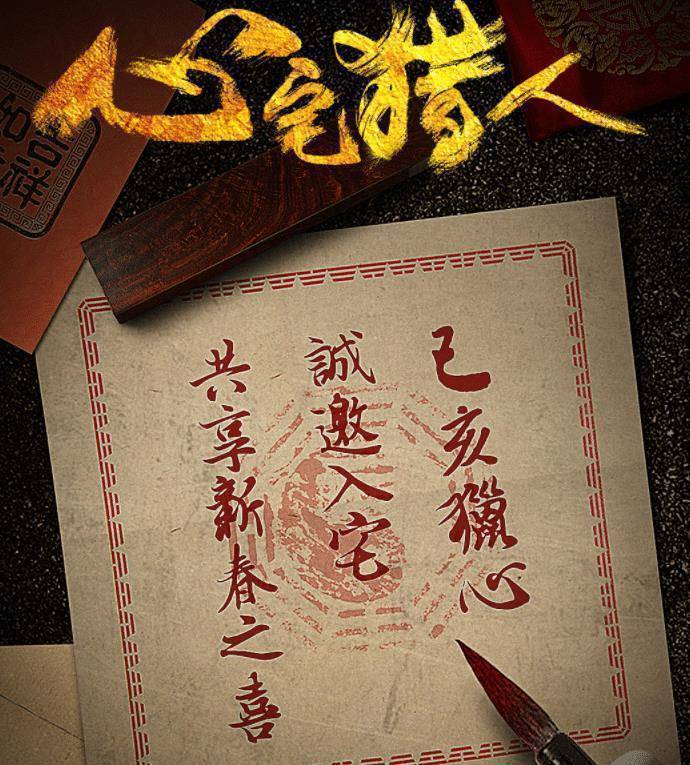 心宅猎人
己亥獵心
誠邀入宅
共享新春之喜